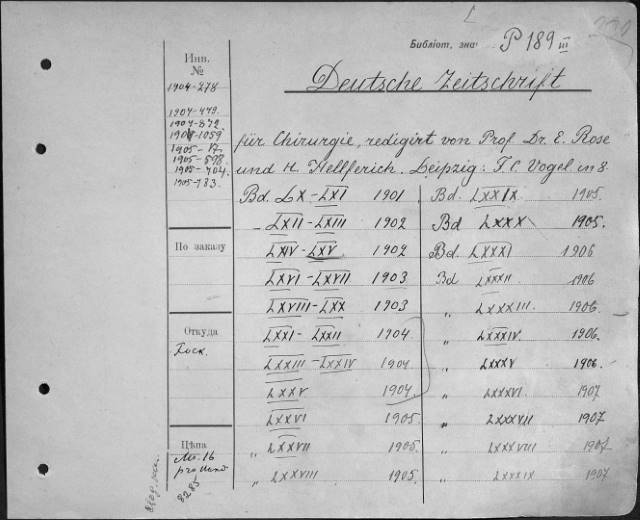 Библіот. зна
P 189 III
Инв.
№
1904-278
1904-479.
1904-872
1904-1059
1905-17.
1905-598
1905-704.
1905-783
Deutsche Zeitschrift
für Chirurgie, redigirt von Prof Dr. E. Rose
und H. Hellferich. Leipzig: F. C. Vogel in 8.
Bd. LX-LXI 1901 Bd. LXXIX 1905.
„ LXII-LXIII 1902 Bd LXXX 1905.
По заказу
LXIV-LXV 1902 Bd. LXXXI 1906
LXVI-LXVII 1903 Bd LXXXII 1906
LXVIII-LXX 1903 „ LXXXIII. 1906.
Откуда
Госк.
LXXI-LXXII 1904 „ LXXXIV. 1906.
LXXIII-LXXIV 1904 „ LXXXV 1906.
LXXV 1904. „ LXXXVI 1907
LXXVI 1905. „ LXXXVII 1907
Цѣна
M. 16
pro Band
8285
„ LXXVII 1905. „ LXXXVIII 1907.
„ LXXVIII 1905. „ LXXXIX 1907